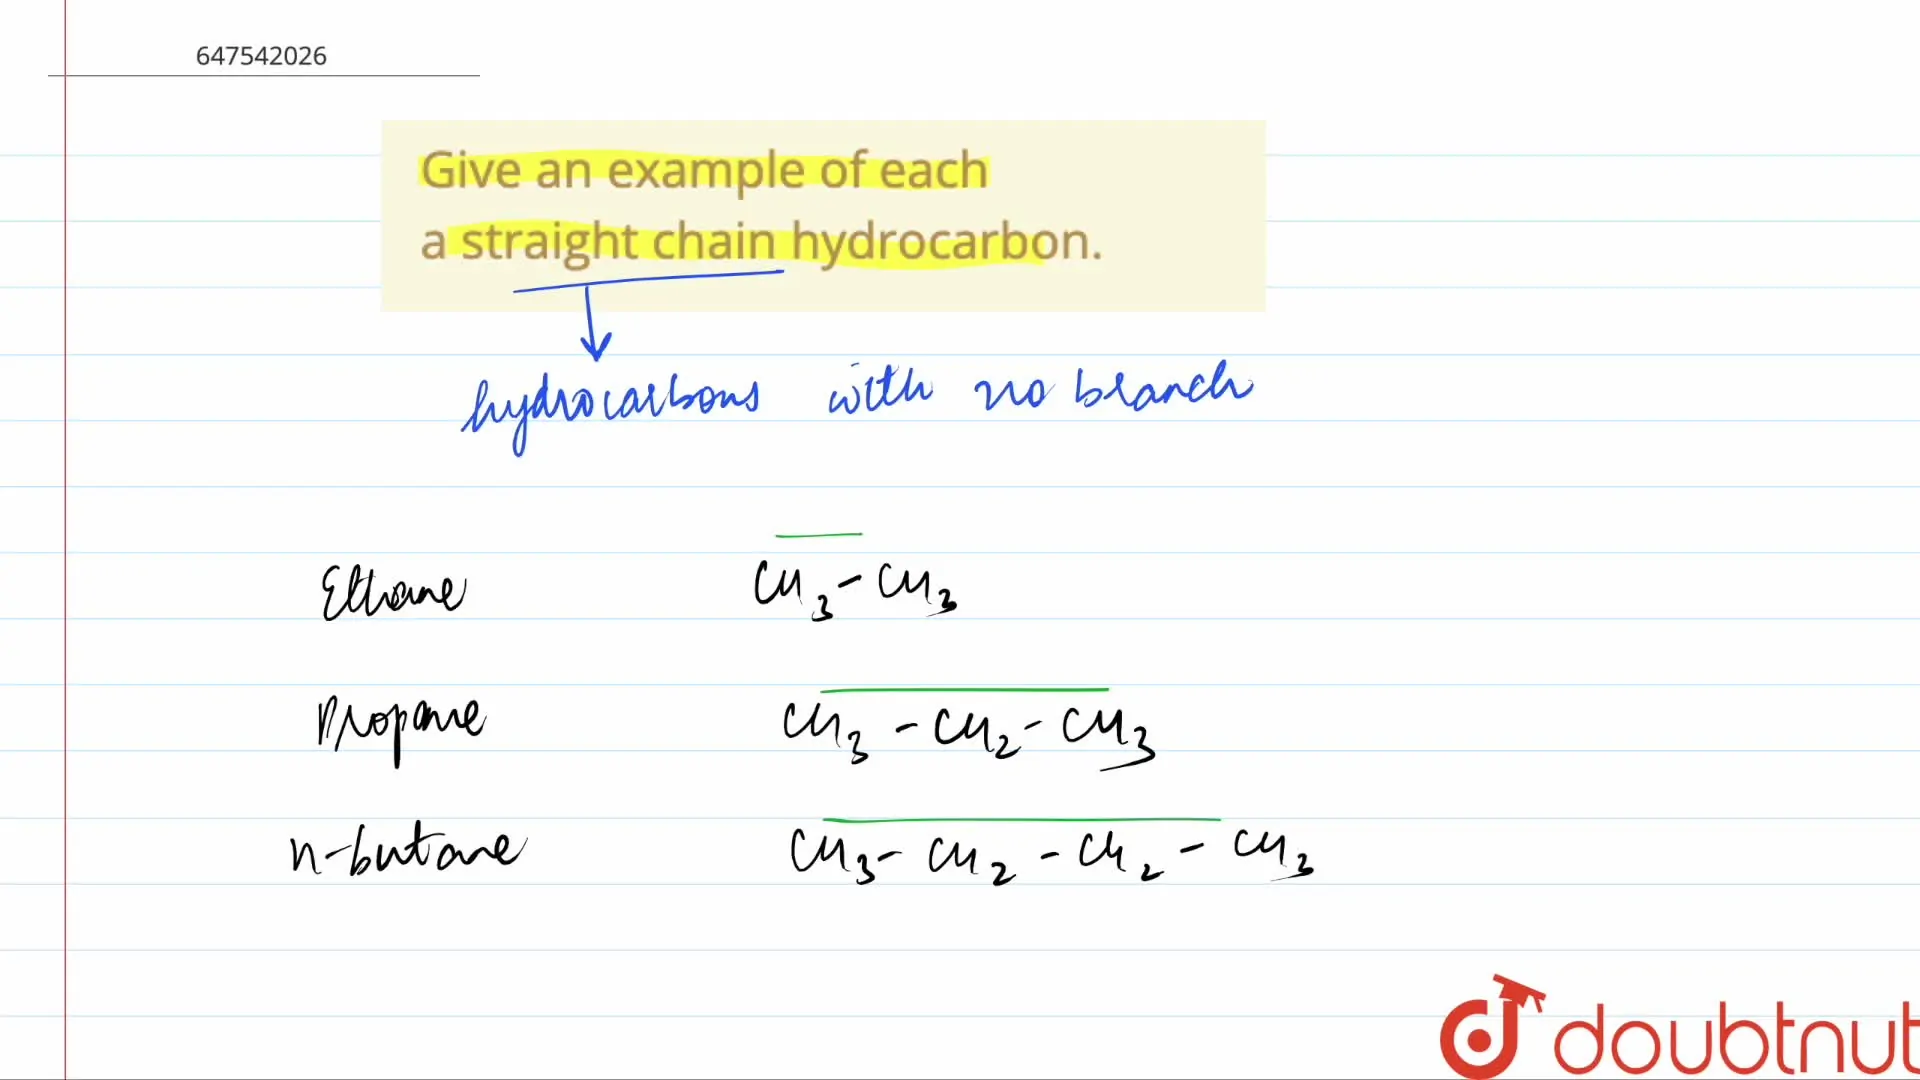 647542026
Give an example of each
a straight chain hydrocarbon.
hydrocarbons with no branch
Ethane CH3-CH3
Propane CH3-CH2-CH3
n-butane CH3-CH2-CH2-CH3
doubtnut